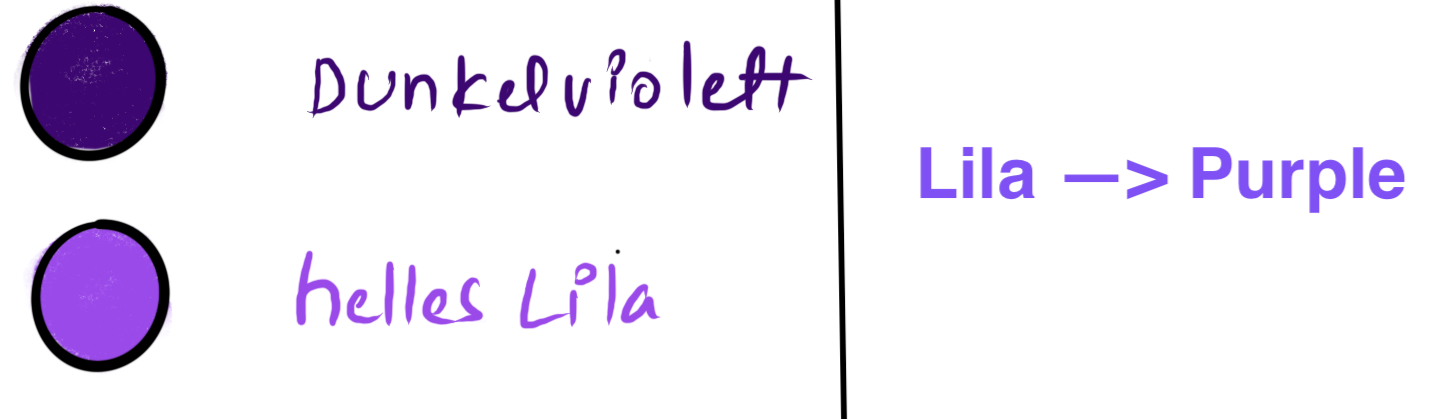 Dunkelviolett
helles Lila
Lila —> Purple